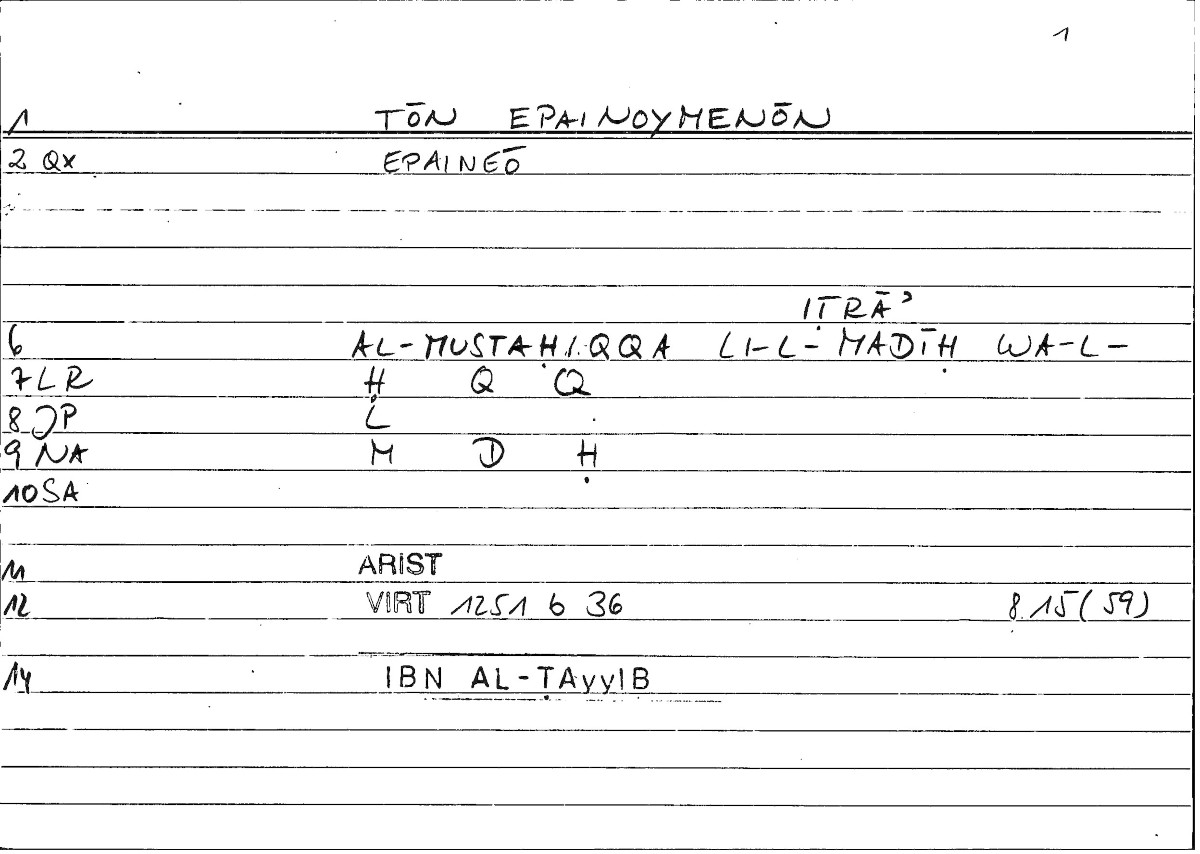 1
1 TŌN EPAINOYMENŌN
2 Qx EPAINEŌ
IṬRĀʾ
6 AL-MUSTAḤIQQA LI-L-MADĪḤ WA-L-
7 LR Ḥ Q Q
8 JP L
9 NA M D Ḥ
10 SA
11 ARIST
12 VIRT 1251 b 36 8.15(59)
14 IBN AL-ṬAyyIB